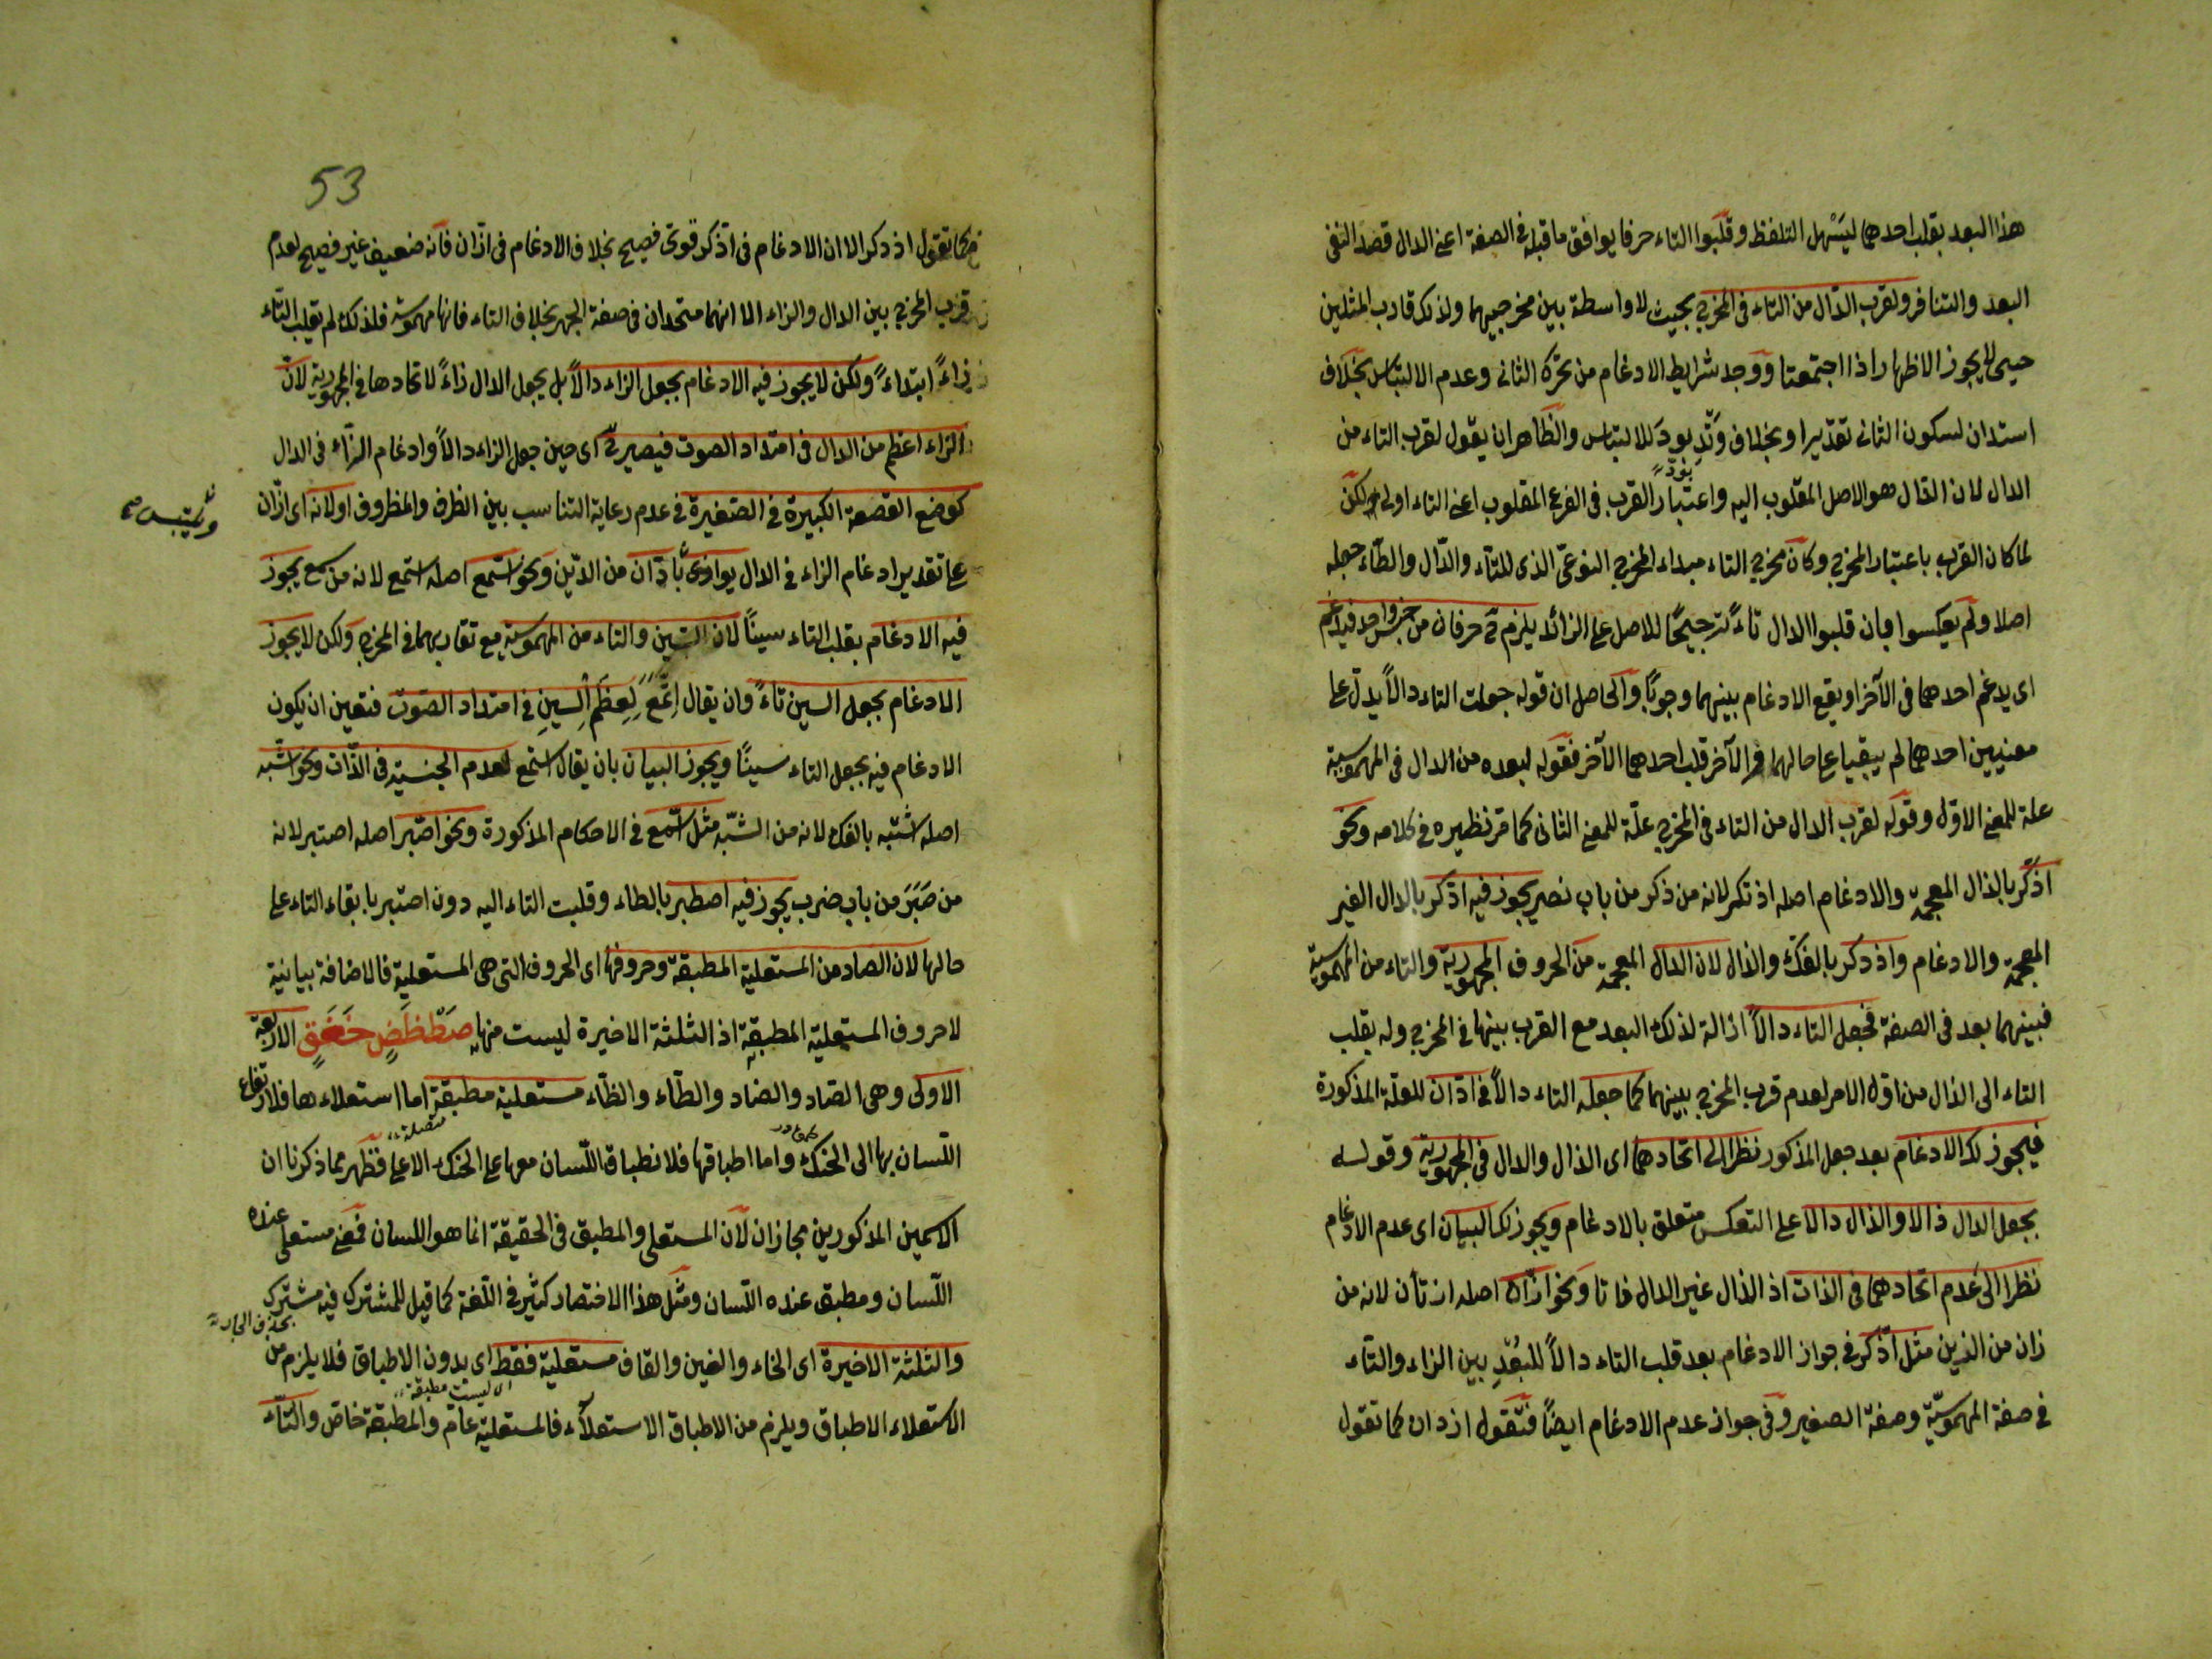 هذا البعد بقلب احدهما ليسهل التلفظ وقلبوا التاء حرفا يوافق ما قبله في الصفة اعني الدال قصد النفي
البعد والتنافر ولقرب الدال من التاء في المخرج بحيث لا واسطة بين مخرجيهما ولذلك قارب المثلين
حتى لا يجوز الاظهار اذا اجتمعتا ووجد شرايط الادغام من تحرك الثاني وعدم الالتباس بخلاف
استدان لسكون الثاني تقديرا وبخلاف وتد يود للالتباس والظاهر ان يقول لقرب التاء من
الدال لان الدال هو الاصل المقلوب اليه واعتبار القرب في الفرع المقلوب اعني التاء اولى ولكن
لما كان القرب باعتبار المخرج وكان مخرج التاء مبداء المخرج النوعي الذي للتاء والدال والطاء جعله
اصلا ولم يعكسوا بان قلبوا الدال تاء ترجيحًا للاصل على الزائد يلزم ح حرفان من جنس واحد فيدغم
اي يدغم احدهما في الآخر او يقع الادغام بينهما وجوبًا والحاصل ان قوله جعلت التاء دالًا يدل على
معنيين احدهما لم يبقيا على حالهما والآخر قلب احدهما الآخر فقوله لبعده من الدال في المهموسية
علة للمعنى الاول وقوله لقرب الدال من التاء في المخرج علة للمعنى الثاني كما مر نظيره في كلامه ونحو
اذّكر بالذال المعجمة والادغام اصله اذتكر لانه من ذكر من باب نصر يجوز فيه ادّكر بالدال الغير
المعجمة والادغام واذدكر بالفك والذال لان الذال المعجمة من الحروف المجهورية والتاء من المهموسية
فبينهما بعد في الصفة فجعل التاء دالًا ازالة لذلك البعد مع القرب بينهما في المخرج ولم يقلب
التاء الى الذال من اول الامر لعدم قرب المخرج بينهما كما جعله التاء دالًا في ادّان للعلة المذكورة
فيجوز لك الادغام بعد جعل المذكور نظرا الى اتحادهما اي الذال والدال في المجهورية وقوله
بجعل الدال ذالا والذال دالا على العكس متعلق بالادغام ويجوز لك البيان اي عدم الادغام
نظرا الى عدم اتحادهما في الذات اذ الذال غير الدال ذاتا ونحو ازّان اصله ازتان لانه من
زان من الزين مثل اذّكر في جواز الادغام بعد قلب التاء دالًا للبُعْدِ بين الزاء والتاء
في صفة المهموسيّة وصفة الصفير وفي جواز عدم الادغام ايضًا فتقول ازدان كما تقول
53
كما تقول اذدكر الا ان الادغام في اذّكر قوي فصيح بخلاف الادغام في ازّان فانه ضعيف غير فصيح لعدم
قرب المخرج بين الدال والزاء الا انهما متحدان في صفة الجهر بخلاف التاء فانها مهموسة فلذلك لم يقلب التاء
زاءً ابتداءً ولكن لا يجوز فيه الادغام بجعل الزاء دالًا بل يجعل الدال زاءً لاتحادهما في المجهورية لان
الزاء اعظم من الدال في امتداد الصوت فيصير ح اي حين جعل الزاء دالًا وادغام الزاء في الدال
كوضع القصعة الكبيرة في الصغيرة في عدم رعاية التناسب بين الظرف والمظروف اولانه اي ازّان
على تقدير ادغام الزاء في الدال يوازي بادّان من الدين ونحو اسّمع اصله استمع لانه من سمع يجوز
فيه الادغام بقلب التاء سينًا لان السين والتاء من المهموسية مع تقاربهما في المخرج ولكن لا يجوز
الادغام بجعل السين تاءً وان يقال اِتَّمَعَ لِعِظَمِ السِينِ في امتداد الصوت فتعين ان يكون
الادغام فيه بجعل التاء سينًا ويجوز البيان بان يقال استمع لعدم الجنسية في الذات ونحو اشّبه
اصله اشتبه بالفك لانه من الشبه مثل اسّمع في الاحكام المذكورة ونحو اصّبر اصله اصتبر لانه
من صَبَرَ من باب ضرب يجوز فيه اصطبر بالطاء وقلبت التاء اليه دون اصتبر بابقاء التاء على
حالها لان الصاد من المستعلية المطبقة وحروفها اي الحروف التي هي المستعلية فالاضافة بيانية
لا حروف المستعلية المطبقة اذ الثلثة الاخيرة ليست منها صَطْظَضٍ خَغَقٍ الاربعة
الاولى وهي الصاد والضاد والطاء والظاء مستعلية مطبقة اما استعلاءها فلارتفاع
اللسان بها الى الحنك واما اطباقها فلانطباق اللسان معها على الحنك الاعلى فظهر مما ذكرنا ان
الاسمين المذكورين مجازان لان المستعلي والمطبق في الحقيقة انما هو اللسان فمعنى مستعلي عنده
اللسان ومطبق عنده اللسان ومثل هذا الاختصار كثير في اللغة كما قيل للمشترك فيه مشترك
بحذف الجار
والثلثة الاخيرة اي الخاء والغين والقاف مستعلية فقط اي بدون الاطباق فلا يلزم من
اي ليست مطبقة
الاستعلاء الاطباق ويلزم من الاطباق الاستعلاء فالمستعلية عام والمطبقة خاص والتاء